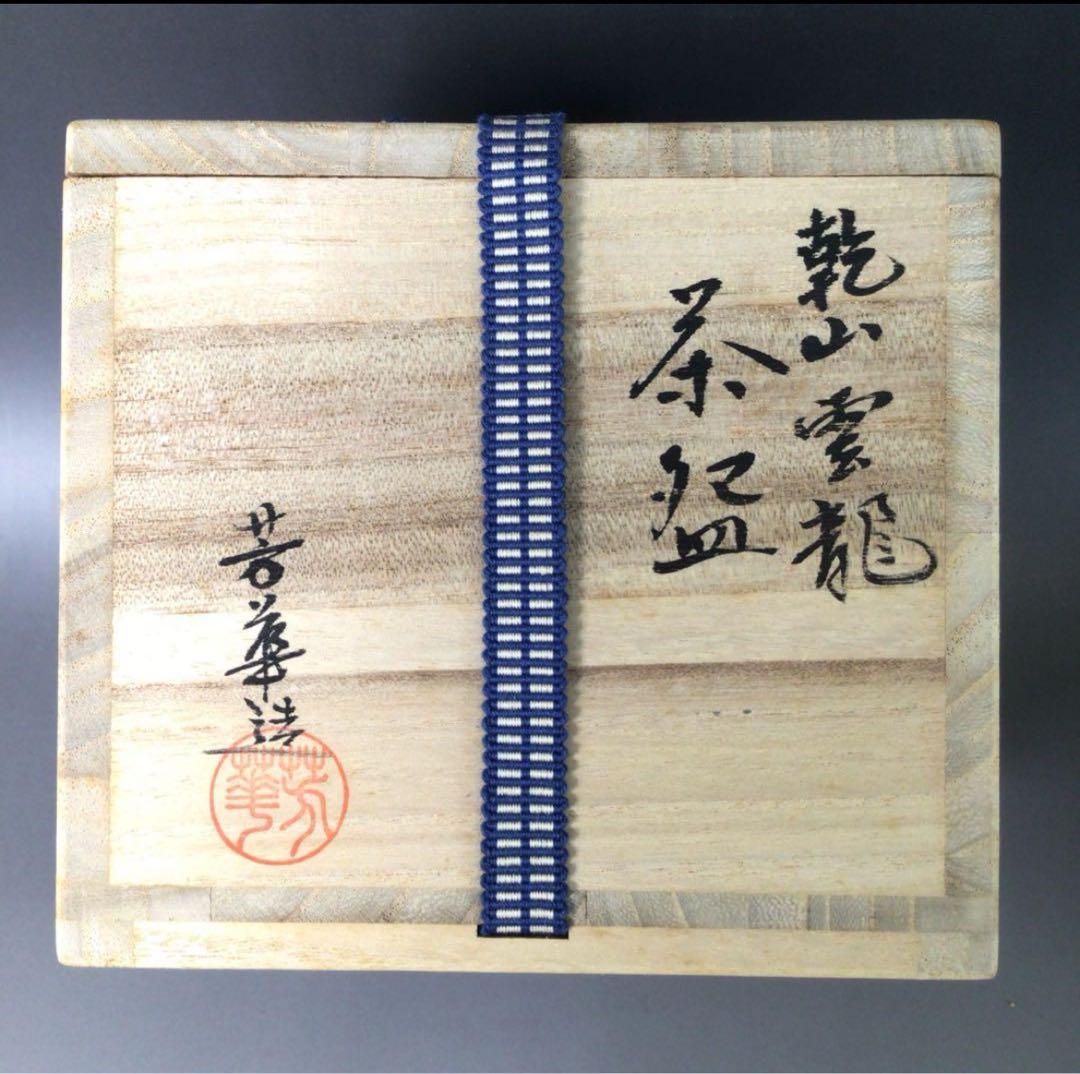 乾山雲龍
茶盌
芳華造
芳華